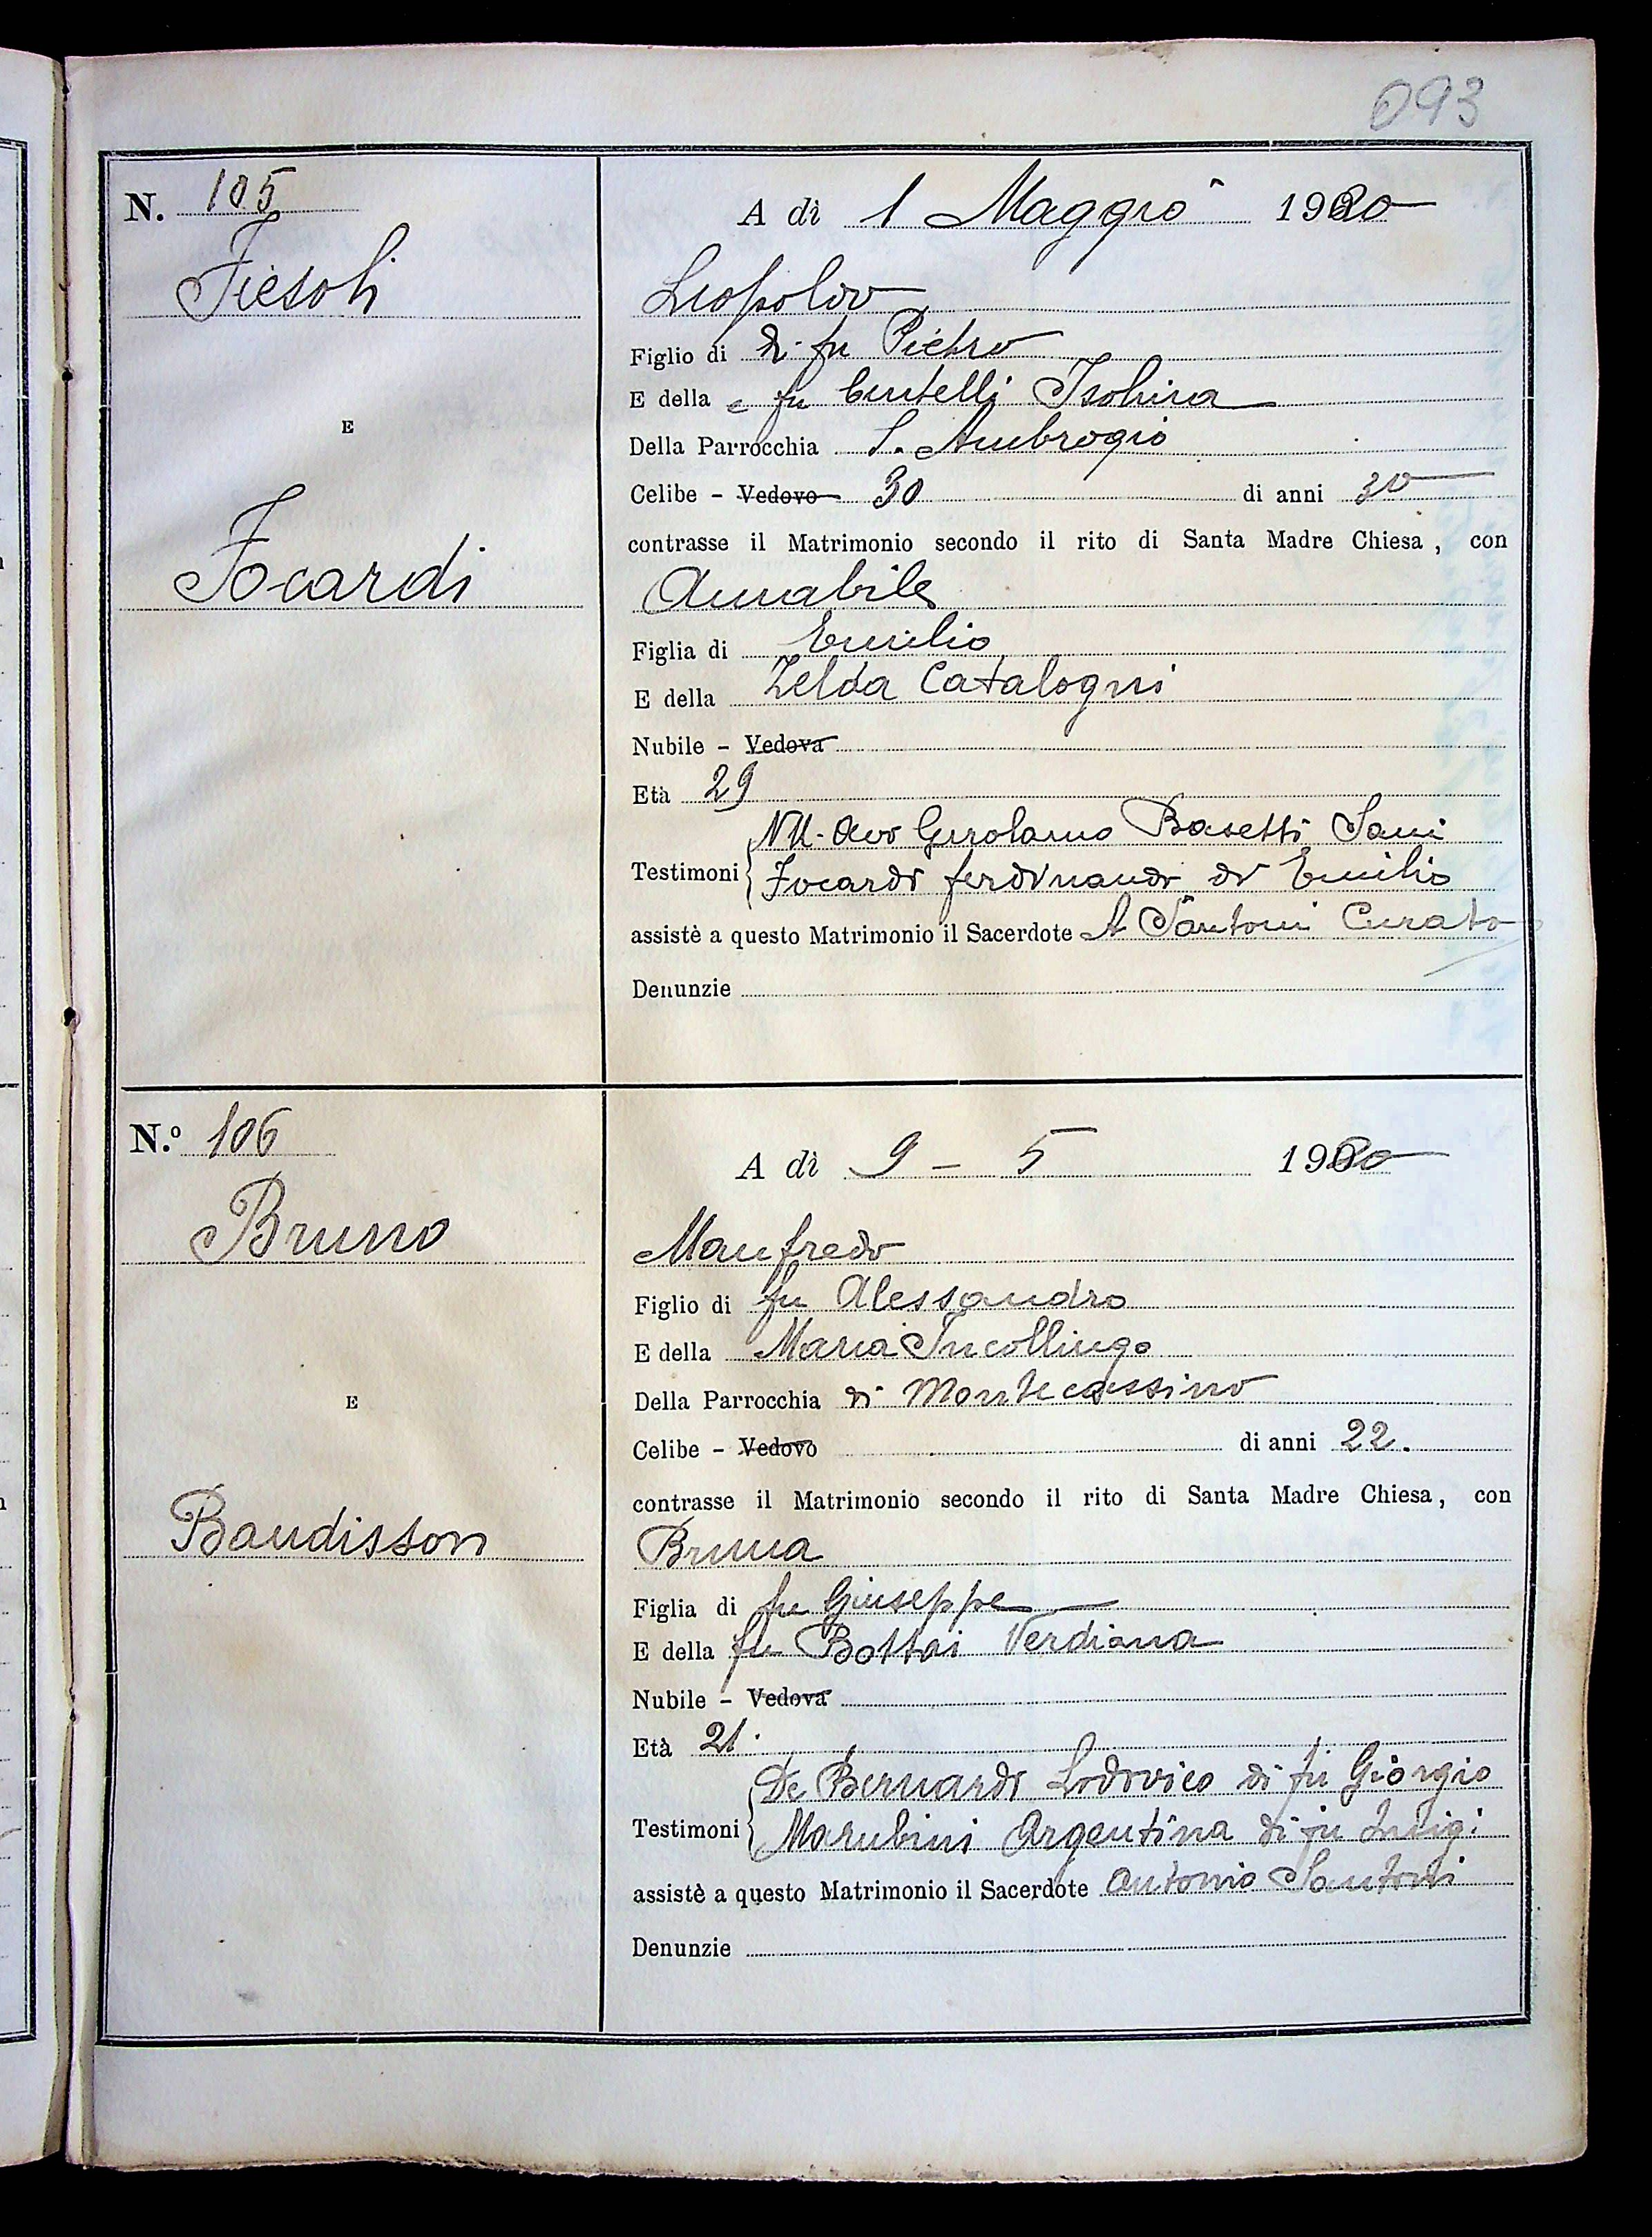 093
N. 105
A dì 1 Maggio 1920
Fiesoli
Leopoldo
Figlio di di fu Pietro
E della e fu Isolina
Della Parrocchia S. Ambrogio
E
Celibe - Vedovo 30 di anni 30
contrasse il Matrimonio secondo il rito di Santa Madre Chiesa, con
Focardi
Annabile
Figlia di Emilio
E della Zelda Catalogni
Nubile - Vedova
Età 29
Testimoni { Girolamo Basetti Sani
Focardi ferdinando di Emilio
assistè a questo Matrimonio il Sacerdote A Santoni Curato
Denunzie
N.º 106
A dì 9 - 5 1920
Bruno
Manfredo
Figlio di fu Alessandro
E della Maria Incollingo
Della Parrocchia di Montecassino
E
Celibe - Vedovo di anni 22.
contrasse il Matrimonio secondo il rito di Santa Madre Chiesa, con
Baudisson
Bruna
Figlia di fu Giuseppe
E della fu Bottai Verdiana
Nubile - Vedova
Età 21.
Testimoni { De Bernardi Lodovico di fu Giorgio
Marubini Argentina di fu Luigi
assistè a questo Matrimonio il Sacerdote Antonio Santoni
Denunzie